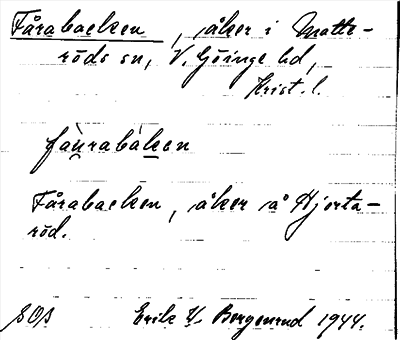 Fårabacken, åker i Matte-
röds sn, V. Göinge hd,
Krist. l.
fau̯rabaken
Fårabacken, åker å Hjorta-
röd.
SOB Erik W. Borgenrud 1944.